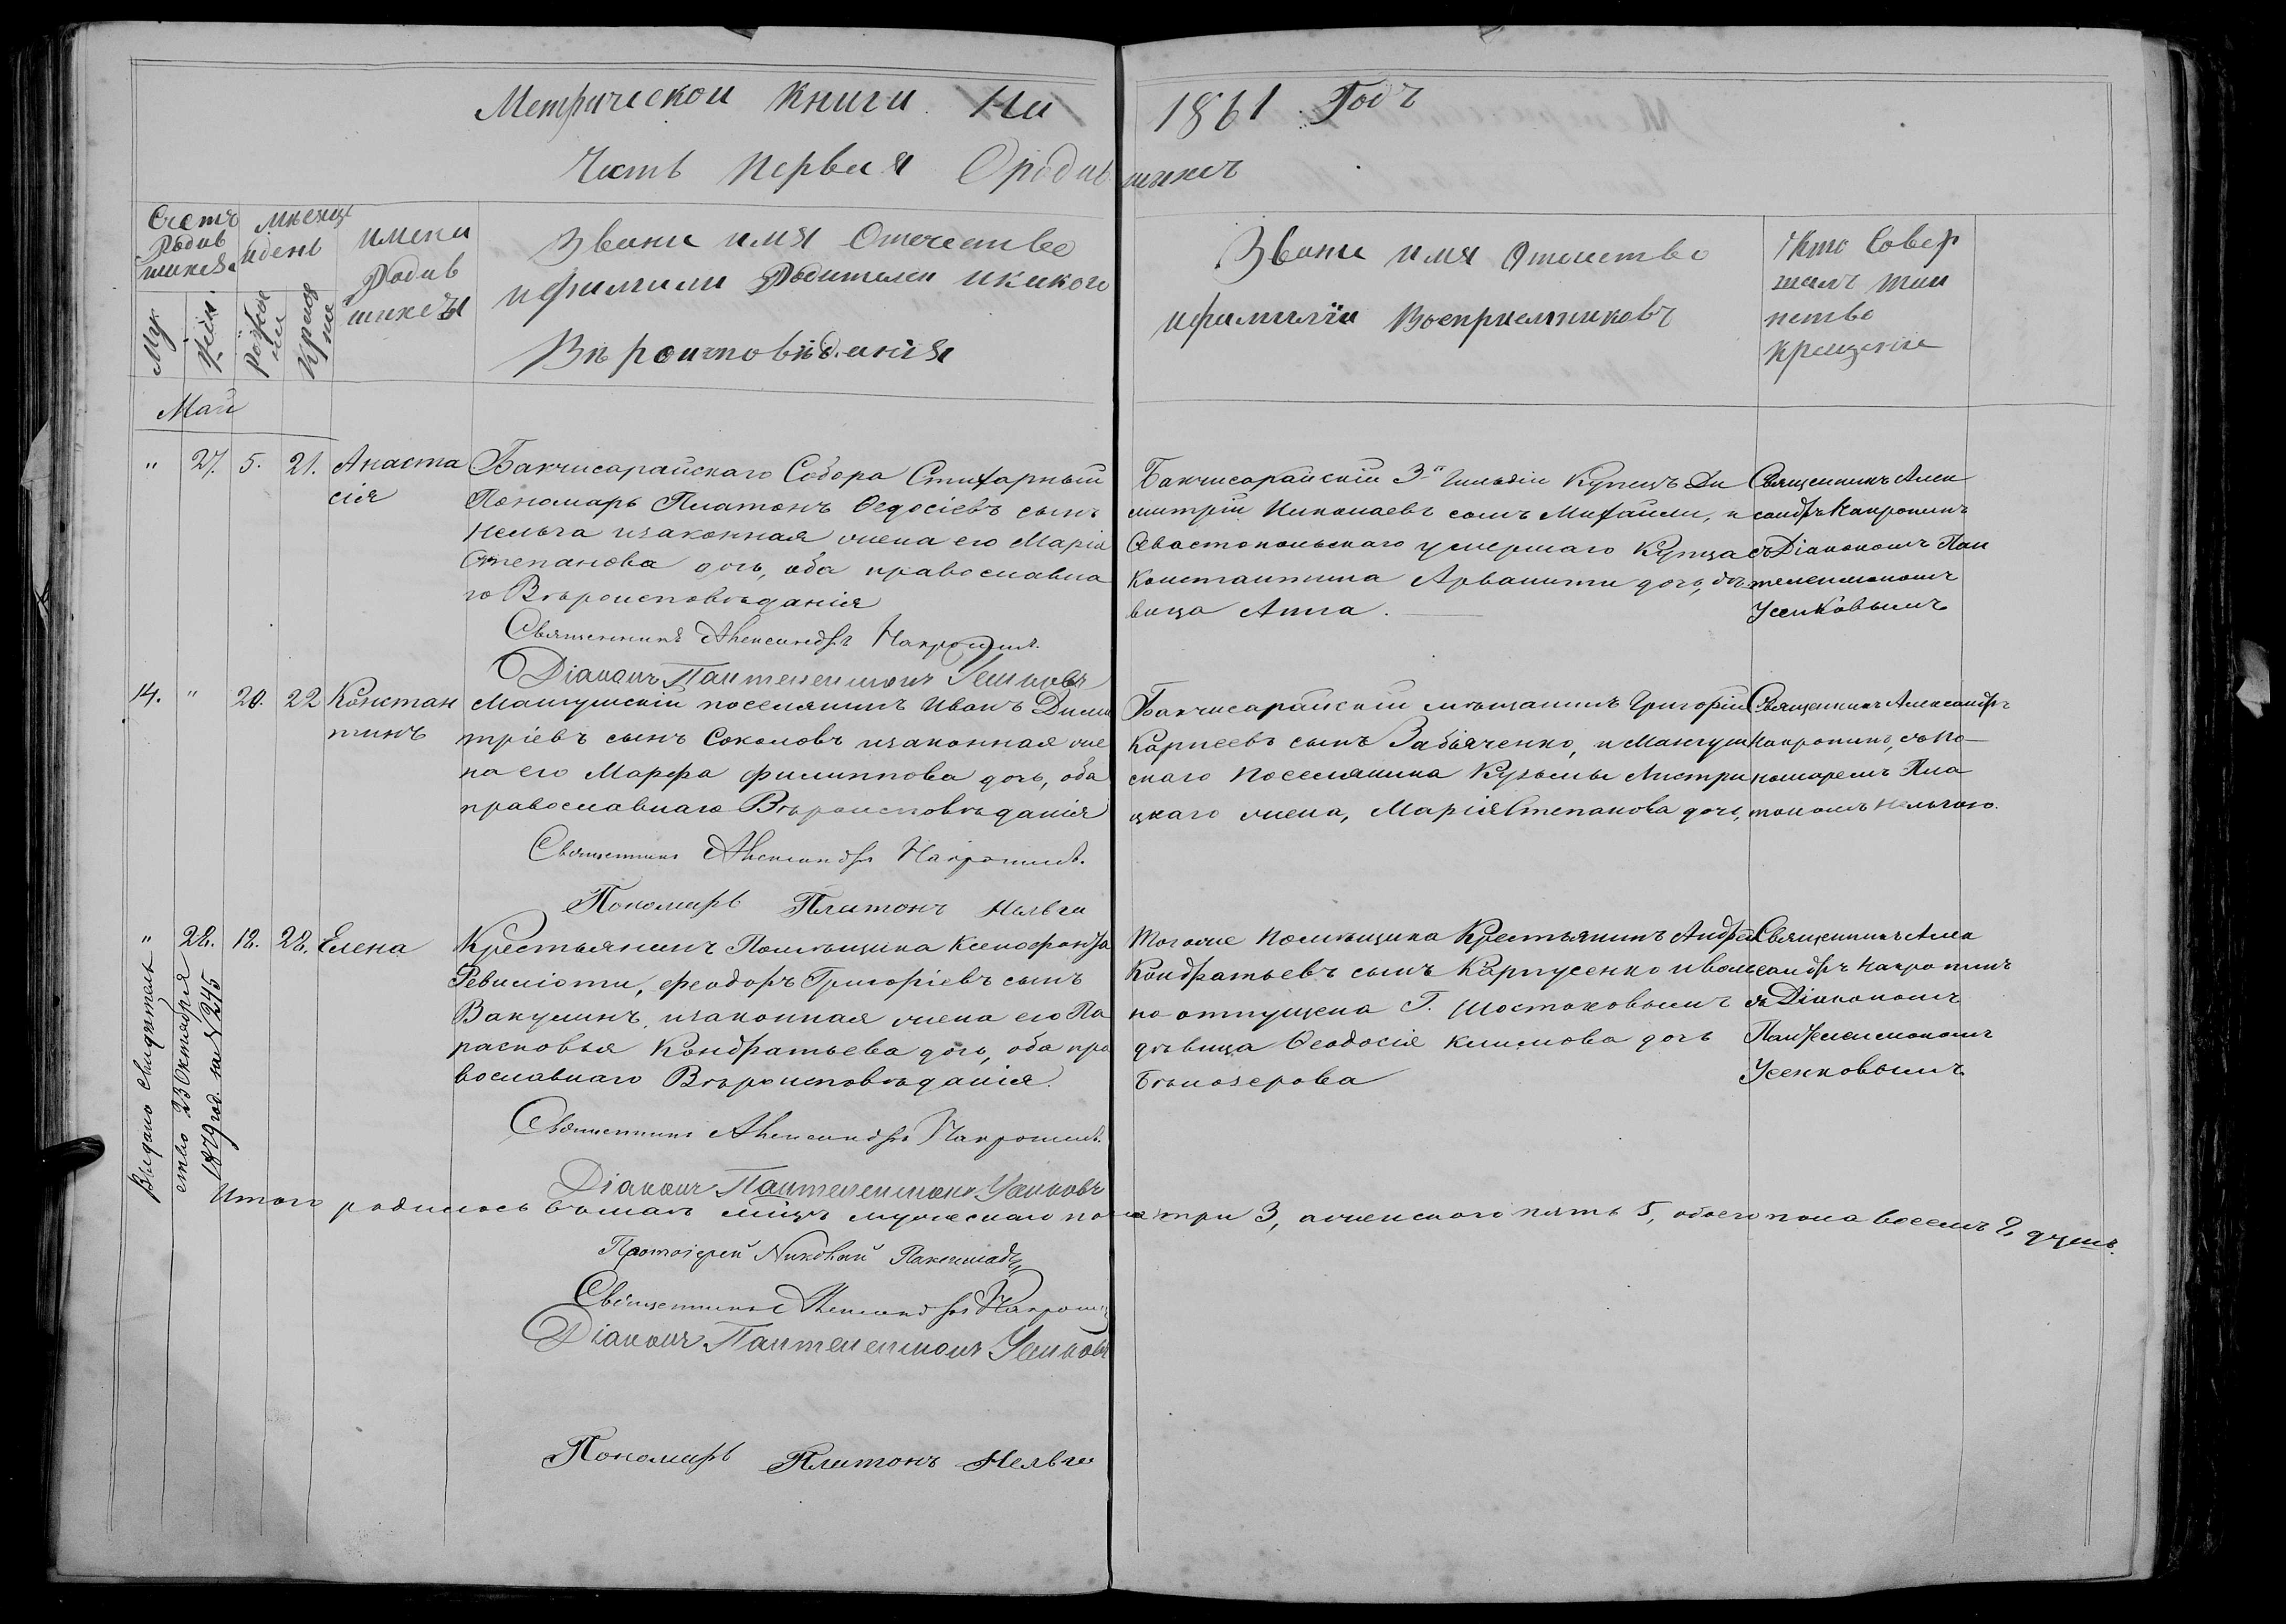 Метрической книги На 1861 Годъ
Часть Первая О родившихся
Счетъ Родившихся
Му. Жен.
Мѣсяцъ и день
Рожденiи Крещенiи
Имена Родившихся
Званiе имя Отечество
и фамилiи Родителей и какого
Вѣроисповѣданiя
Званiе имя Отечество
и фамилiи Воспрiемниковъ
Кто Совершалъ таинство крещенiе
Май
" 27. 5. 21. Анаста
сiя
Бакчисарайскаго Собора Стихарный
Пономарь Платонъ Ѳедосiевъ сынъ
Нельга и законная жена его Марiя
Степанова дочь, оба православна
го Вѣроисповѣданiя
Священникъ Александръ
Дiаконъ Пантелеимонъ Усенковъ
Бакчисарайскiй 3й Гильдiи Купецъ Ди
митрiй Николаевъ сынъ Михайли, и
Севастопольскаго умершаго Купца
Константина Арванити дочь, дѣ
вица Анна.
Священникъ Алек
сандръ
съ Дiакономъ Пан
телеимономъ
Усенковымъ
14. " 20. 22 Констан
тинъ
Мангушскiй поселянинъ Иванъ Дими
трiевъ сынъ Соколовъ и законная же
на его Марфа Филиппова дочь, оба
православнаго Вѣроисповѣданiя
Священникъ Александръ
Пономарь Платонъ Нельга
Бакчисарайскiй мѣщанинъ Григорiй
Карпеевъ сынъ Забiяченко, и Мангуш
скаго Поселянина Кузьмы Листри
цкаго жена, Марiя Степанова дочь,
Священникъ Александръ
съ По-
номаремъ Пла
тономъ Нельгою.
" 28. 18. 28. Елена
Крестьянинъ Помѣщика Ксенофонта
Ревилiоти, Феодоръ Григорiевъ сынъ
Вакулинъ, и законная жена его Па
расковья Кондратьева дочь, оба пра
вославнаго Вѣроисповѣданiя.
Священникъ Александръ
Дiаконъ Пантелеимонъ Усенковъ
Тогоже Помѣщика Крестьянинъ Андрей
Кондратьевъ сынъ Карпусенко и воль
но отпущена Г. Шостаковымъ
дѣвица Ѳеодосiя Климова дочь
Бѣлозерова
Священникъ Алек
сандръ
съ Дiакономъ
Пантелеимономъ
Усенковымъ
Выдано свидѣтель
ство 23 Октября
1879 год. за № 245
Итого родилось въ маѣ мѣцѣ мужескаго пола три 3, а женскаго пять 5, обоего пола восемь 8, душъ.
Протоiерей Николай
Священникъ Александръ
Дiаконъ Пантелеимонъ Усенковъ
Пономарь Платонъ Нельга